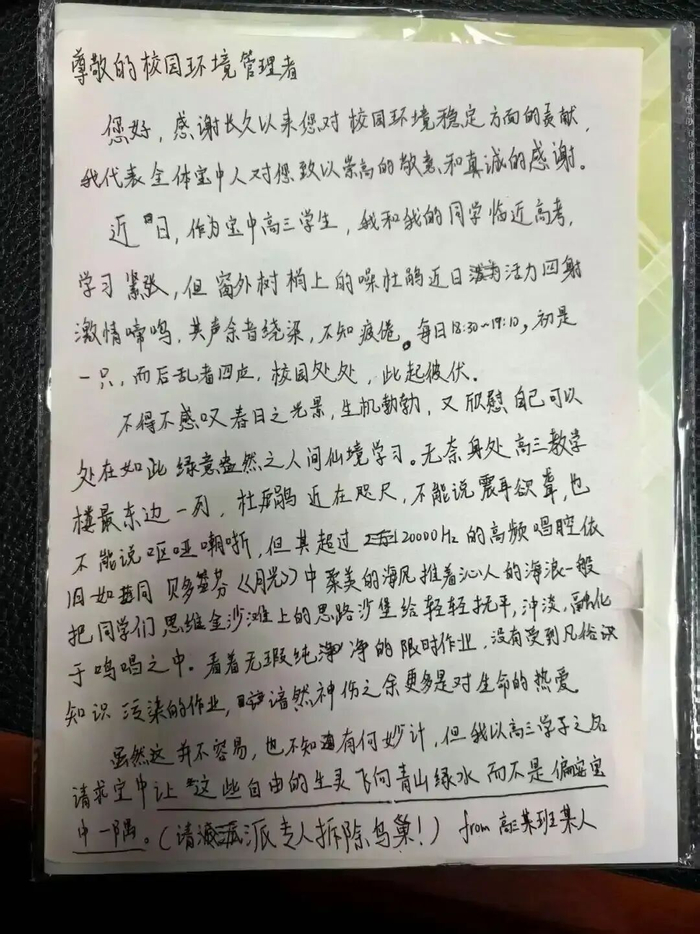 尊敬的校园环境管理者
您好，感谢长久以来您对校园环境稳定方面的贡献，
我代表全体宝中人对您致以崇高的敬意和真诚的感谢。
近日，作为宝中高三学生，我和我的同学临近高考，
学习紧张，但窗外树梢上的噪杜鹃近日活力四射
激情啼鸣，其声余音绕梁，不知疲倦。每日18:30~19:10，初是
一只，而后乱者四应，校园处处，此起彼伏．
不得不感叹春日之光景，生机勃勃，又欣慰自己可以
处在如此绿意盎然之人间仙境学习。无奈身处高三教学
楼最东边一列，杜鹃近在咫尺，不能说震耳欲聋，也
不能说呕哑嘲哳，但其超过20000Hz的高频唱腔依
旧如同贝多芬《月光》中柔美的海风推着沁人的海浪一般
把同学们思维金沙滩上的思路沙堡给轻轻抚平，冲淡，融化
于鸣唱之中．看着无瑕纯净的限时作业，没有受到凡俗
知识污染的作业，谙然神伤之余更多是对生命的热爱
虽然这并不容易，也不知有何妙计，但我以高三学子之名
请求宝中让这些自由的生灵飞向青山绿水而不是偏安宝
中一隅。（请派专人拆除鸟巢！） from 高三某班某人